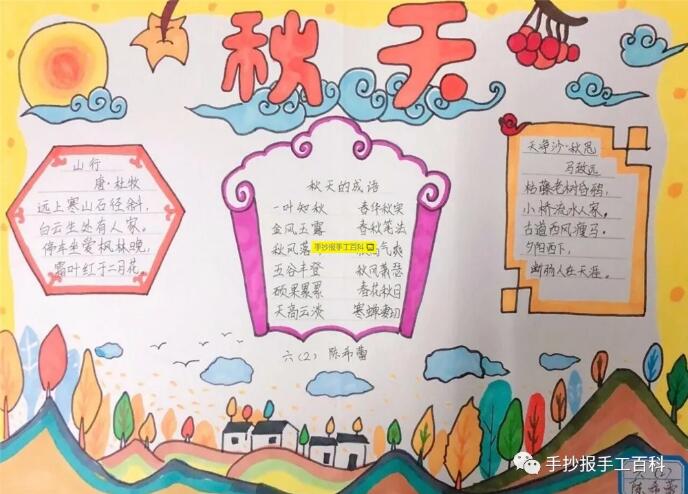 秋天
山行
唐·杜牧
远上寒山石径斜,
白云生处有人家。
停车坐爱枫林晚,
霜叶红于二月花。
秋天的成语
一叶知秋 春华秋实
金风玉露 春秋笔法
秋风落 手抄报手工百科 气爽
五谷丰登 秋风萧瑟
硕果累累 春花秋日
天高云淡 寒蝉凄切
六(2) 陈希
天净沙·秋思
马致远
枯藤老树昏鸦,
小桥流水人家。
古道西风瘦马。
夕阳西下,
断肠人在天涯。
手抄报手工百科
六(2)
陈希